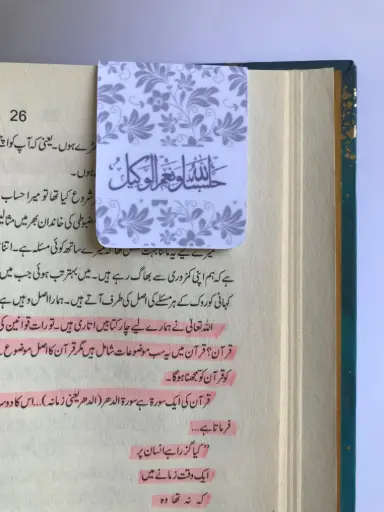 26
حسبنا الله ونعم الوكيل
ڑے ہوں۔ یعنی کہ آپ کو اچھ
ہوں۔
شروع کیا تھا تو میرا حساب
مضبوطی کی خاندان بھر میں مثالیں
کے ساتھ کوئی مسئلہ ہے۔ اتفا
ہے کہ ہم اپنی کمزوری سے بھاگ رہے ہیں۔ میں بہتر تب ہوئی جب میں
کہانی کو روک کے ہر مسئلے کی اصل کی طرف آتے ہیں۔ ہمارا اصل وہیں ہے
اللہ تعالیٰ نے ہمارے لیے چار کتابیں اتاری ہیں۔ تورات قوانین کی
قرآن؟ قرآن میں یہ سب موضوعات شامل ہیں مگر قرآن کا اصل موضوع
کو قرآن کو سمجھنا ہوگا۔
قرآن کی ایک سورۃ ہے سورۃ الدھر (الدھر یعنی زمانہ)... اس کا دوسر
فرماتا ہے...
"کیا گزرا ہے انسان پر
ایک وقت زمانے میں
کہ نہ تھا وہ